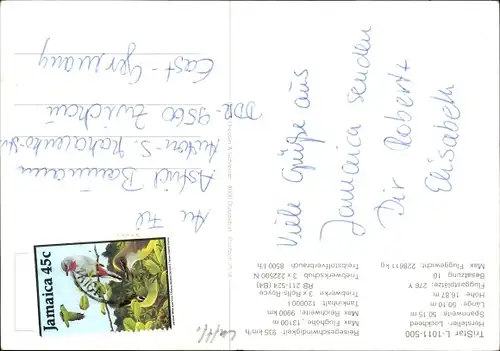 Viele Grüße aus
Jamaica senden
Dir Robert +
Elisabeth
An Frl.
Astrid Baumann
Anton-S.
DDR-9560 Zwickau
East-Germany
Jamaica 45c
TriStar L-1011-500
Hersteller: Lockheed
Spannweite 50,15 m
Länge 50,10 m
Höhe 16,87 m
Fluggastsitze: 276 Y
Besatzung 10
Max. Fluggewicht: 228611 kg
Reisegeschwindigkeit 935 km/h
Max. Flughöhe 13100 m
Max. Reichweite 9900 km
Tankinhalt 120000 l
Triebwerke 3 x Rolls-Royce
RB 211-524 (B4)
Triebwerkschub 3 x 222500 N
Treibstoffverbrauch 8500 l/h